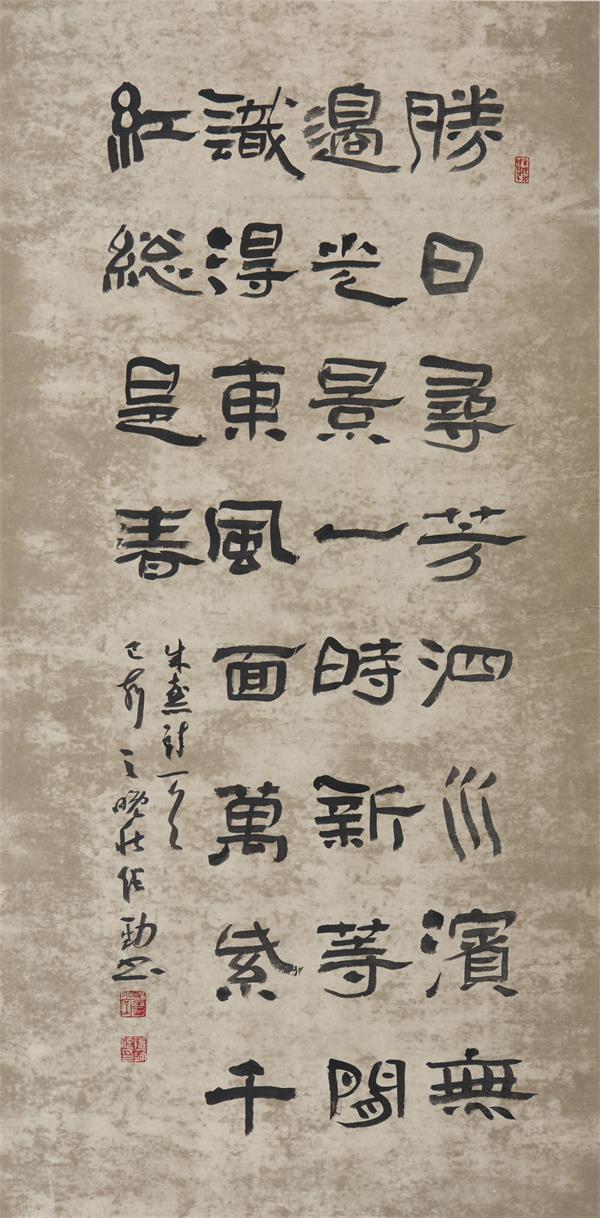 勝日尋芳泗水濱無
邊光景一時新等閒
識得東風面萬紫千
紅総是春
朱熹詩一首
之晚秋 勁書